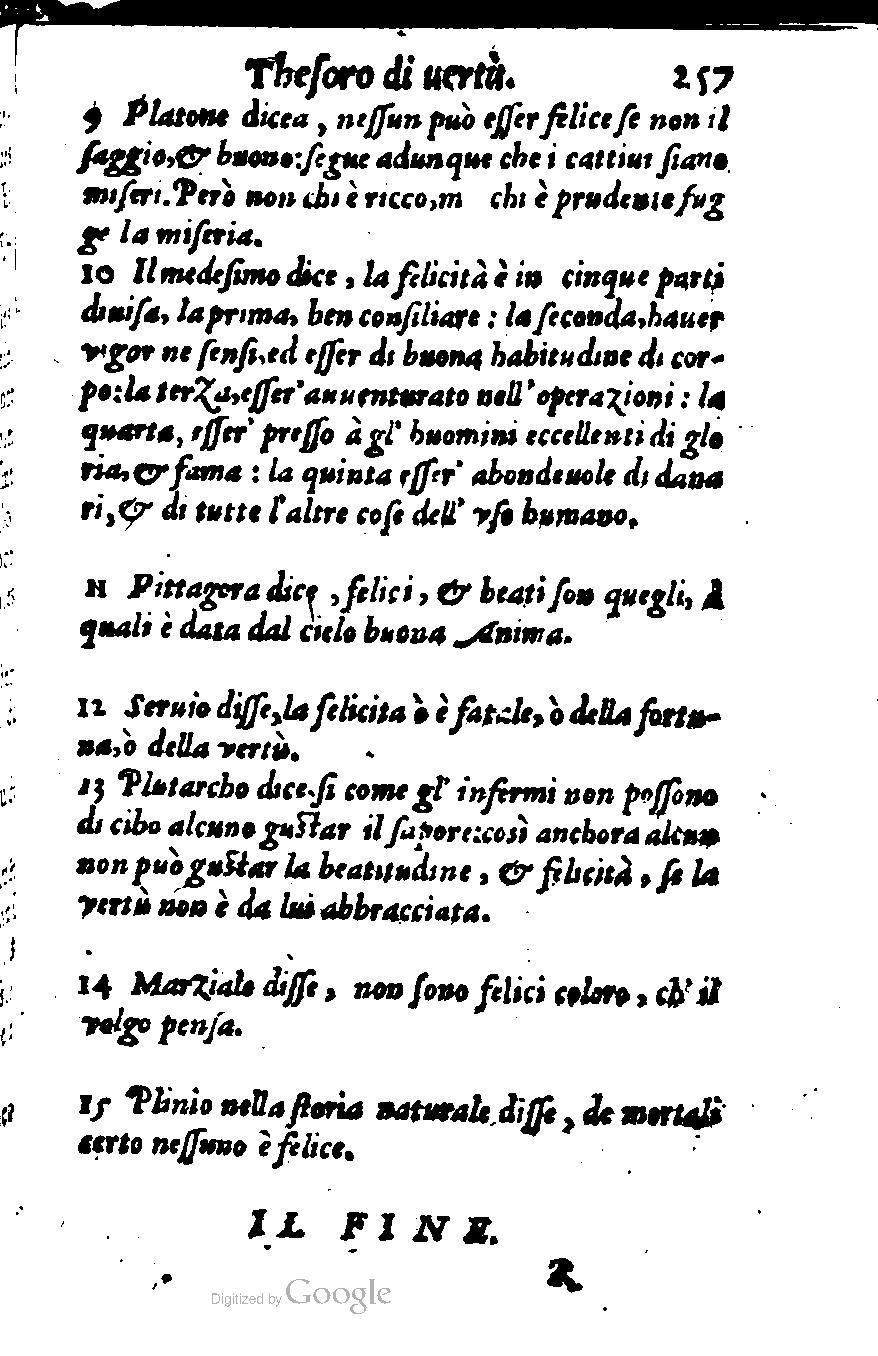 Theſoro di uertù. 257
9 Platone dicea, neſſun può eſſer felice ſe non il
ſaggio,& buono:ſegue adunque che i cattiui ſiano
miſeri.Però non chi è ricco,m chi è prudente fug
ge la miſeria.
10 Il medeſimo dice, la felicità è in cinque parti
diuiſa, la prima, ben conſiliare: la ſeconda,hauer
vigor ne ſenſi,ed eſſer di buona habitudine di cor-
po:la terza,eſſer'auuenturato nell'operazioni: la
quarta, eſſer' preſſo à gl' huomini eccellenti di glo
ria,& fama: la quinta eſſer' abondeuole di dana
ri,& di tutte l'altre coſe dell' vſo humano.
11 Pittagora dice, felici, & beati ſon quegli, A
quali è data dal cielo buona Anima.
12 Seruio diſſe,la felicita ò è fatale,ò della fortu-
na,ò della vertù.
13 Plutarcho dice,ſi come gl' infermi non poſſono
di cibo alcuno guſtar il ſapore:così anchora alcun
non può guſtar la beatitudine, & felicità, ſe la
vertù non è da lui abbracciata.
14 Marziale diſſe, non ſono felici coloro, ch' il
volgo penſa.
15 Plinio nella ſtoria naturale diſſe, de mortali
certo neſſuno è felice.
IL FINE.
R
Digitized by Google